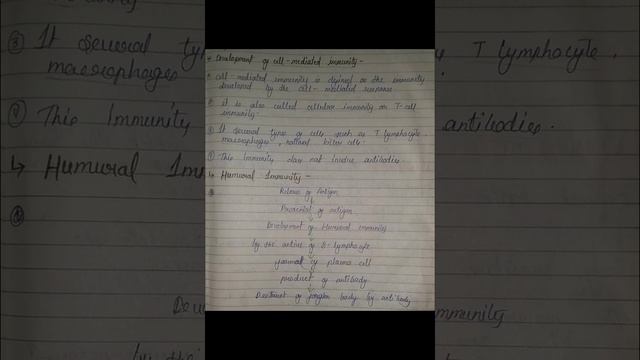 * Development of cell-mediated immunity -
① Cell-mediated immunity is defined as the immunity
developed by the cell-mediated response
② it is also called cellular immunity or T-cell
immunity.
③ It several types of cells such as T lymphocyte.
macrophages, natural killer cells.
④ This Immunity does not involve antibodies.
↳ Humural Immunity -
①
Release of Antigen
↓
of antigen
↓
Development of Humural immunity
by the action of B-lymphocyte
of plasma cell
product of antibody
↓
of body by antibody